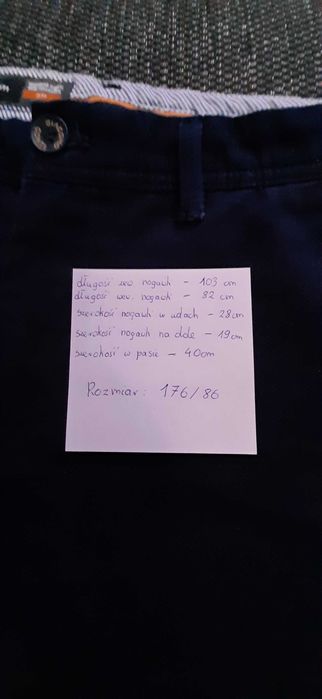 długość zew. nogawk - 103 cm
długość wew. nogawk - 82 cm
szerokość nogawk w udach - 28cm
szerokość nogawk na dole - 19cm
szerokość w pasie - 40cm
Rozmiar: 176/86